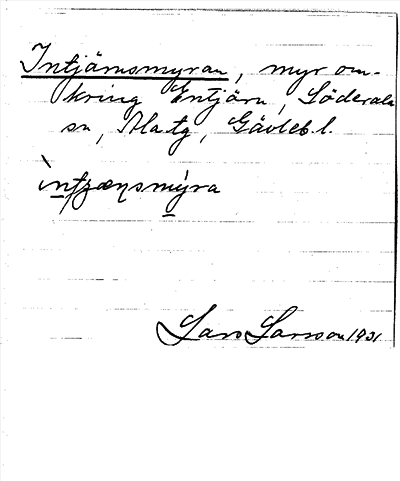 Intjärnsmyran, myr om-
kring Entjärn, Söderala
sn, Ala tg, Gävleb. l.
ìntjænsmýra
Lars Larsson 1931